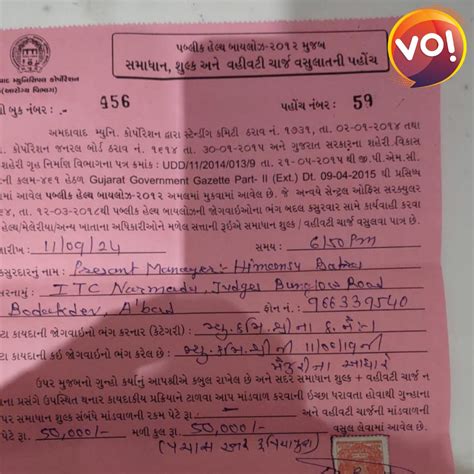 vo!
પબ્લીક હેલ્થ બાયલોઝ-૨૦૧૨ મુજબ
સમાધાન, શુલ્ક અને વહીવટી ચાર્જ વસુલાતની પહોંચ
વાદ મ્યુનિસિપલ કોર્પોરેશન
(આરોગ્ય વિભાગ)
બુક નંબર : - 456 પહોંચ નંબર : 59
અમદાવાદ મ્યુનિ. કોર્પોરેશન દ્વારા સ્ટેન્ડીંગ કમિટી ઠરાવ નં. ૧૦૩૧, તા. ૦૨-૦૧-૨૦૧૪ તથા
. કોર્પોરેશન જનરલ બોર્ડ ઠરાવ નં. ૧૬૧૪ તા. ૩૦-૦૧-૨૦૧૪ અને ગુજરાત સરકારના શહેરી.વિકાસ
શહેરી ગૃહ નિર્માણ વિભાગના પત્ર ક્રમાંક : UDD/11/2014/013/9 તા. ૨૧-૦૫-૨૦૧૫થી જી.પી.એમ.સી.
ની કલમ-૪૬૧ હેઠળ Gujarat Government Gazette Part- II (Ext.) Dt. 09-04-2015 થી પ્રસિધ્ધ
માં આવેલ છે પબ્લીક હેલ્થ બાયલોઝ-૨૦૧૨ અમલમાં મુકવામાં આવેલ છે. જે અન્વયે સેન્ટ્રલ ઓફિસ સરક્યુલર
૧૬૪, તા. ૧૨-૦૩-૨૦૧૮થી પબ્લીક હેલ્થ બાયલોઝની જોગવાઈઓના ભંગ બદલ કસુરવાર સામે કાર્યવાહી કરવા
હેલ્થ/મેલેરીયા/અન્ય ખાતાના અધિકારીઓને મળેલ સત્તાની રૂઈએ સમાધાન શુલ્ક / વહીવટી ચાર્જ વસુલવા પાત્ર છે.
તારીખ : 11/09/24 સમય : 6:50 Pm
કસુરદારનું નામ : Presant Manager:- Himansu
સરનામું : ITC Narmada, Judges Bunglow Road
Bodakdev, A'bad ફોન નં. : 966339540
ટા કાયદાની જોગવાઈનો ભંગ કરનાર (કેટેગરી) : મ્યુ. કમિ. શ્રી ના
ટા કાયદાનો ભંગ કરેલ છે : મ્યુ. કમિ. શ્રી ની 11/09/19 ની
મંજુરીના આધારે
ઉપર મુજબનો ગુન્હો કર્યાનું આપશ્રીએ કબુલ રાખેલ છે અને સદર સમાધાન શુલ્ક + વહીવટી ચાર્જ ન
ના પ્રસંગે ઉપસ્થિત થનાર કાયદાકીય પ્રક્રિયાને ટાળવા આ અંગેની માંડવાળ કરવાની ઇચ્છા ધરાવતા હોવાથી ગુન્હાના
સમાધાન શુલ્ક સંબંધે માંડવાળની રકમ પેટે રૂા. અને વહીવટી ચાર્જની માંડવાળની
પેટે રૂા. 50,000/- મળી કુલ રૂા. 50,000/- વસુલ લેવામાં આવેલ છે.
(પચાસ હજાર રૂપિયા પુરા)